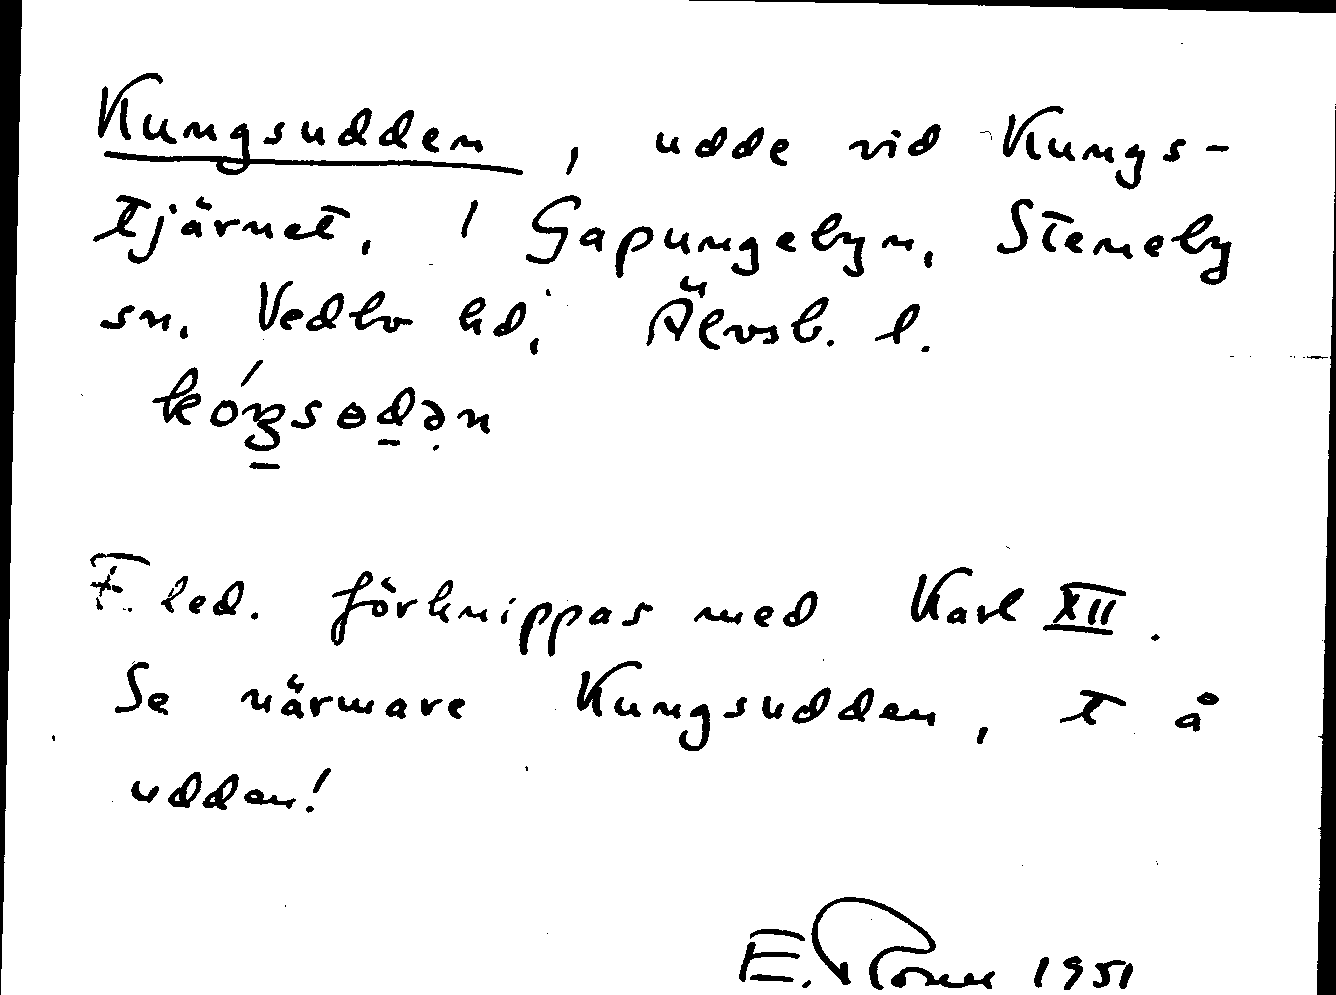 Kungsudden, udde vid Kungs-
tjärnet, i Gapungebyn, Steneby
sn, Vedbo hd, Älvsb. l.
F. led. förknippas med Karl XII.
Se närmare Kungsudden, t å
udden!
E. 1951